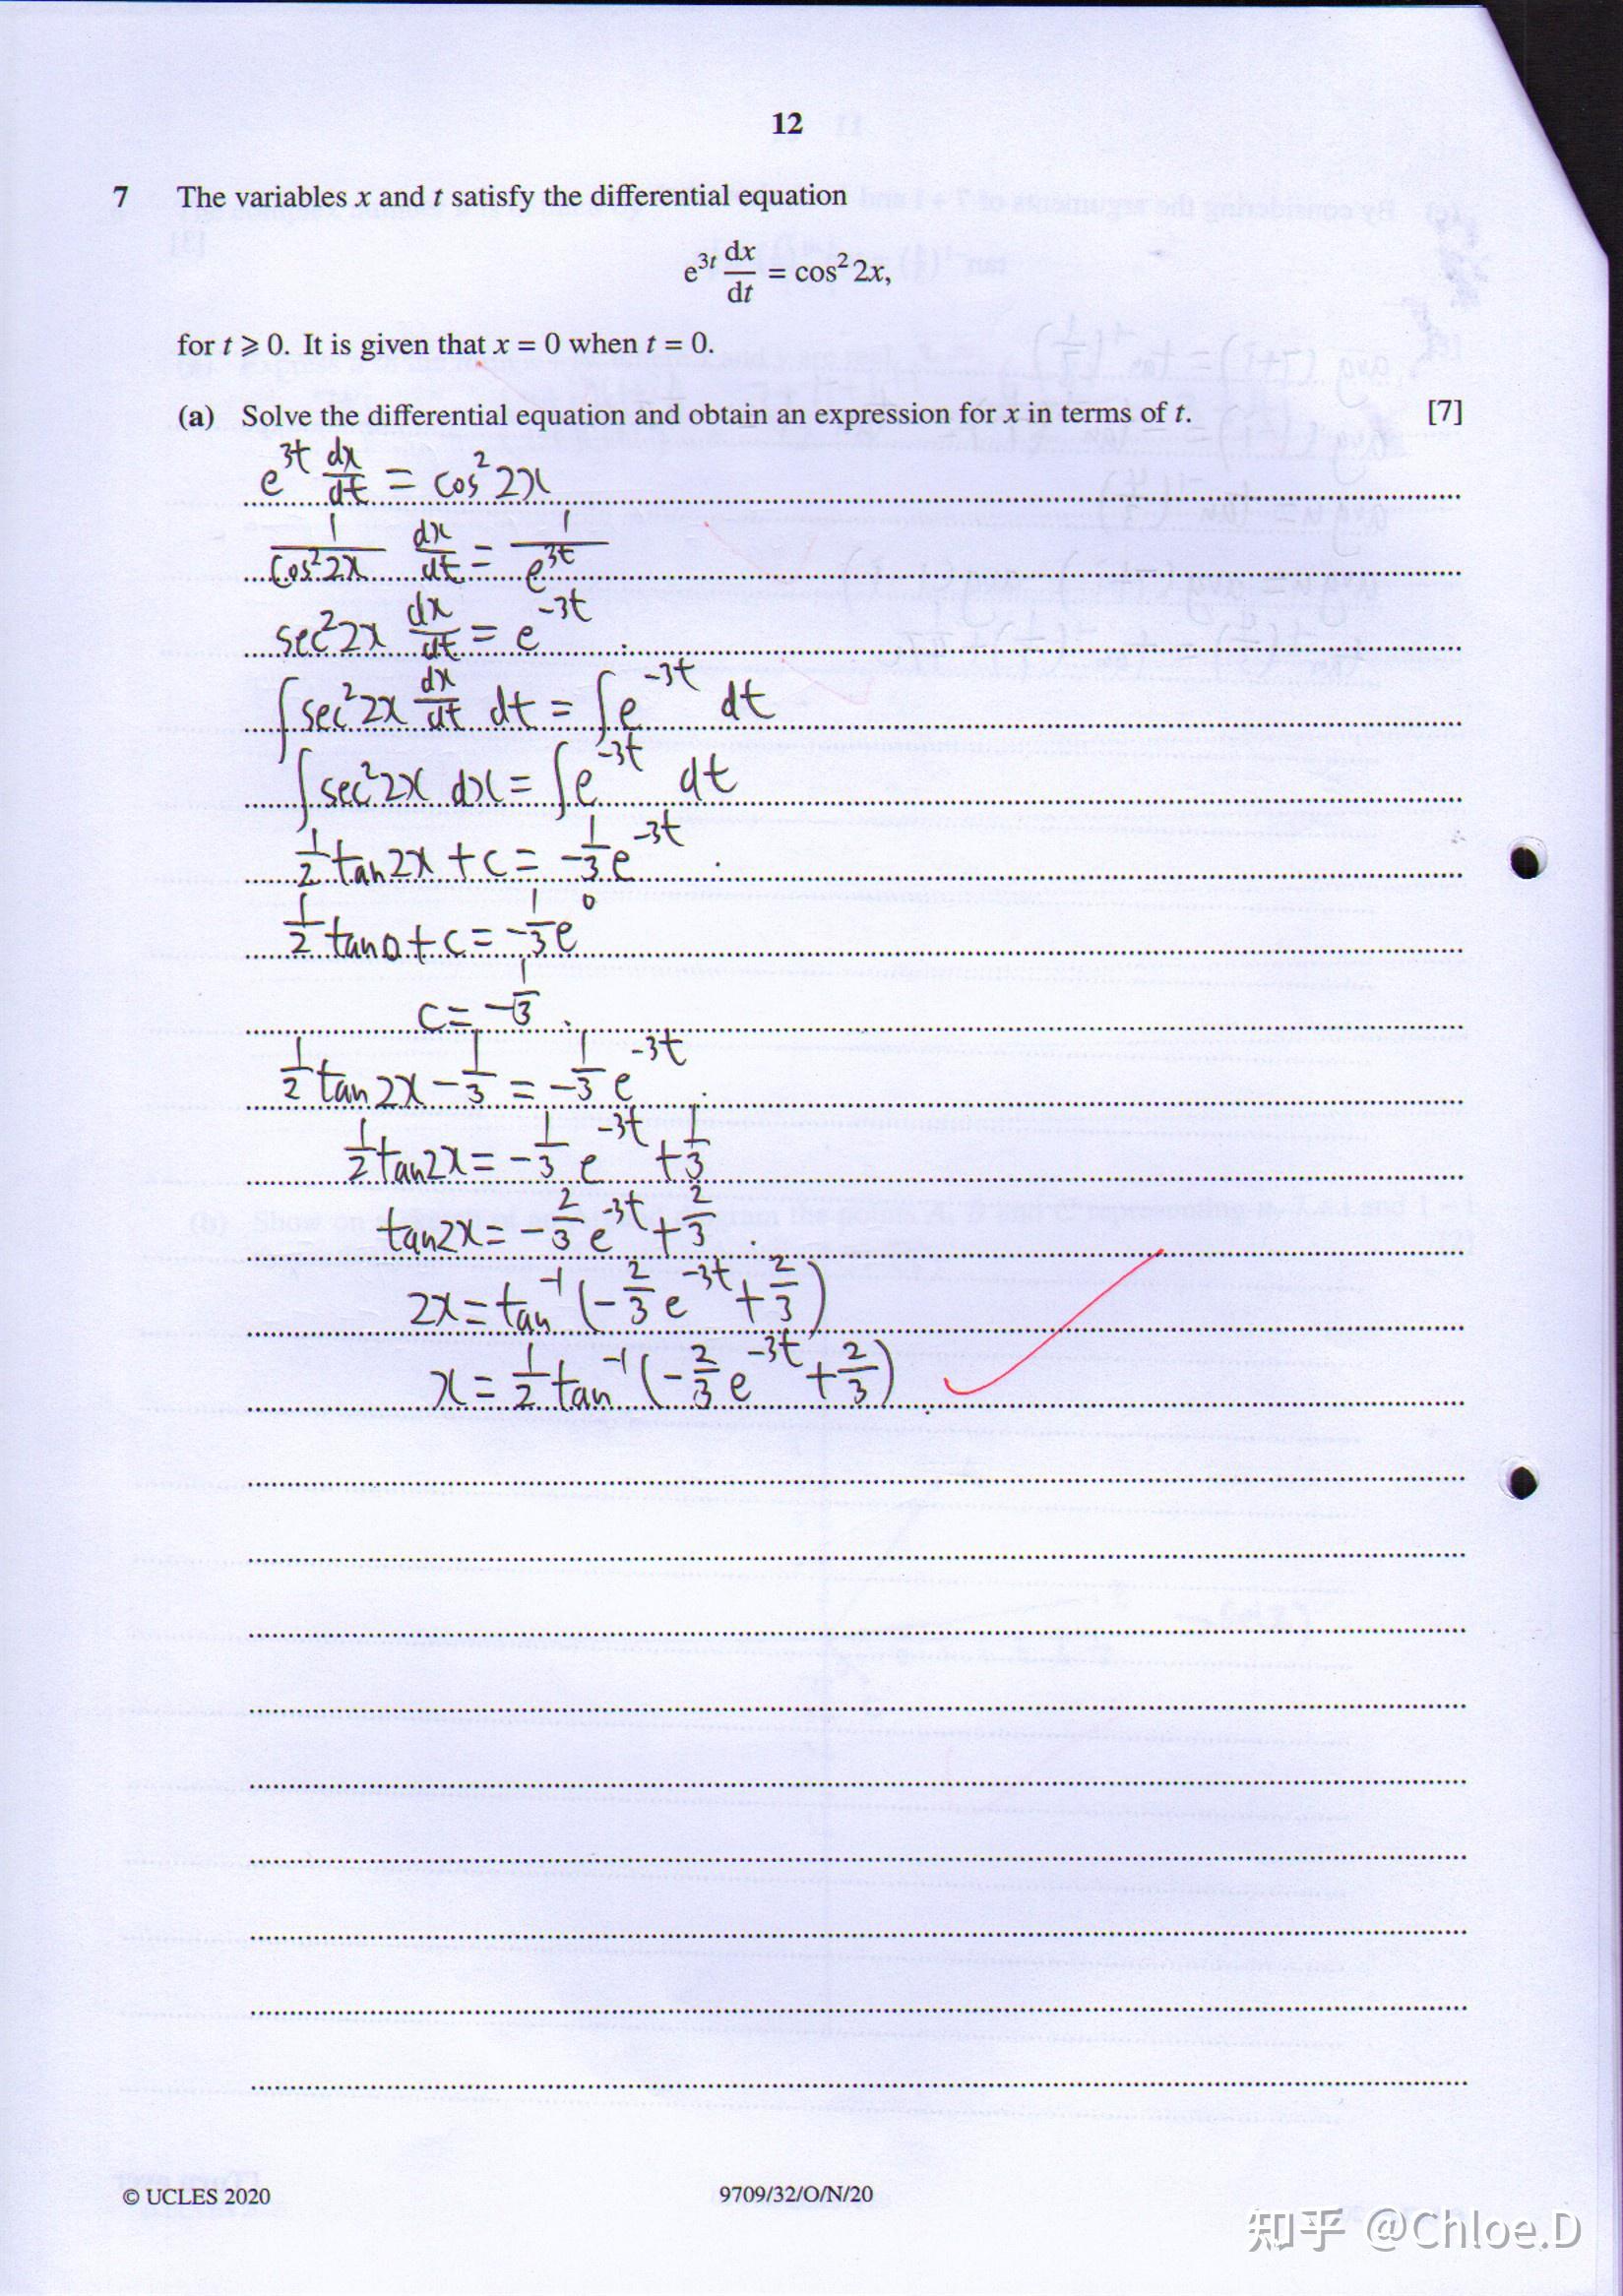 12
7 The variables x and t satisfy the differential equation
e^{3t} dx/dt = cos² 2x,
for t ⩾ 0. It is given that x = 0 when t = 0.
(a) Solve the differential equation and obtain an expression for x in terms of t. [7]
e^{3t} dx/dt = cos² 2x
1/cos² 2x dx/dt = 1/e^{3t}
sec² 2x dx/dt = e^{-3t}.
∫ sec² 2x dx/dt dt = ∫ e^{-3t} dt
∫ sec² 2x dx = ∫ e^{-3t} dt
1/2 tan 2x + c = -1/3 e^{-3t}.
1/2 tan 0 + c = -1/3 e^0
c = -1/3.
1/2 tan 2x - 1/3 = -1/3 e^{-3t}.
1/2 tan 2x = -1/3 e^{-3t} + 1/3
tan 2x = -2/3 e^{-3t} + 2/3.
2x = tan^{-1} (-2/3 e^{-3t} + 2/3)
x = 1/2 tan^{-1} (-2/3 e^{-3t} + 2/3).
© UCLES 2020 9709/32/O/N/20
知乎 @Chloe.D